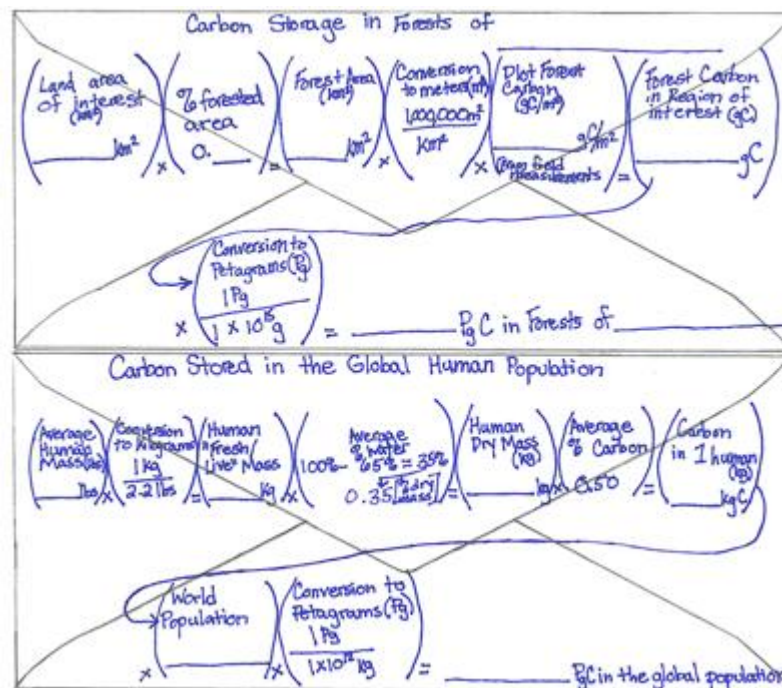 Carbon Storage in Forests of
(Land area of interest (km²) ____ km²)
× (% forested area 0.____)
= (Forest Area (km²) ____ km²)
× (Conversion to meters (m²) 1,000,000m² / km²)
× (Plot Forest Carbon (gC/m²) ____ gC/m² (from field measurements)
= (Forest Carbon in Region of interest (gC) ____ gC)
× (Conversion to Petagrams (Pg) 1 Pg / 1 × 10¹⁵g)
= ____ Pg C in Forests of ____
Carbon Stored in the Global Human Population
(Average Human Mass (lbs) ____ lbs)
× (Conversion to Kilograms 1 kg / 2.2 lbs)
= (Human "Fresh/Live" Mass ____ kg)
× (Average % water 100% - 65% = 35% 0.35 [% dry mass])
= (Human Dry Mass (kg) ____ kg)
× (Average % Carbon 0.50)
= (Carbon in 1 human (kg) ____ kgC)
× (World Population ____)
× (Conversion to Petagrams (Pg) 1 Pg / 1×10¹² kg)
= ____ PgC in the global population